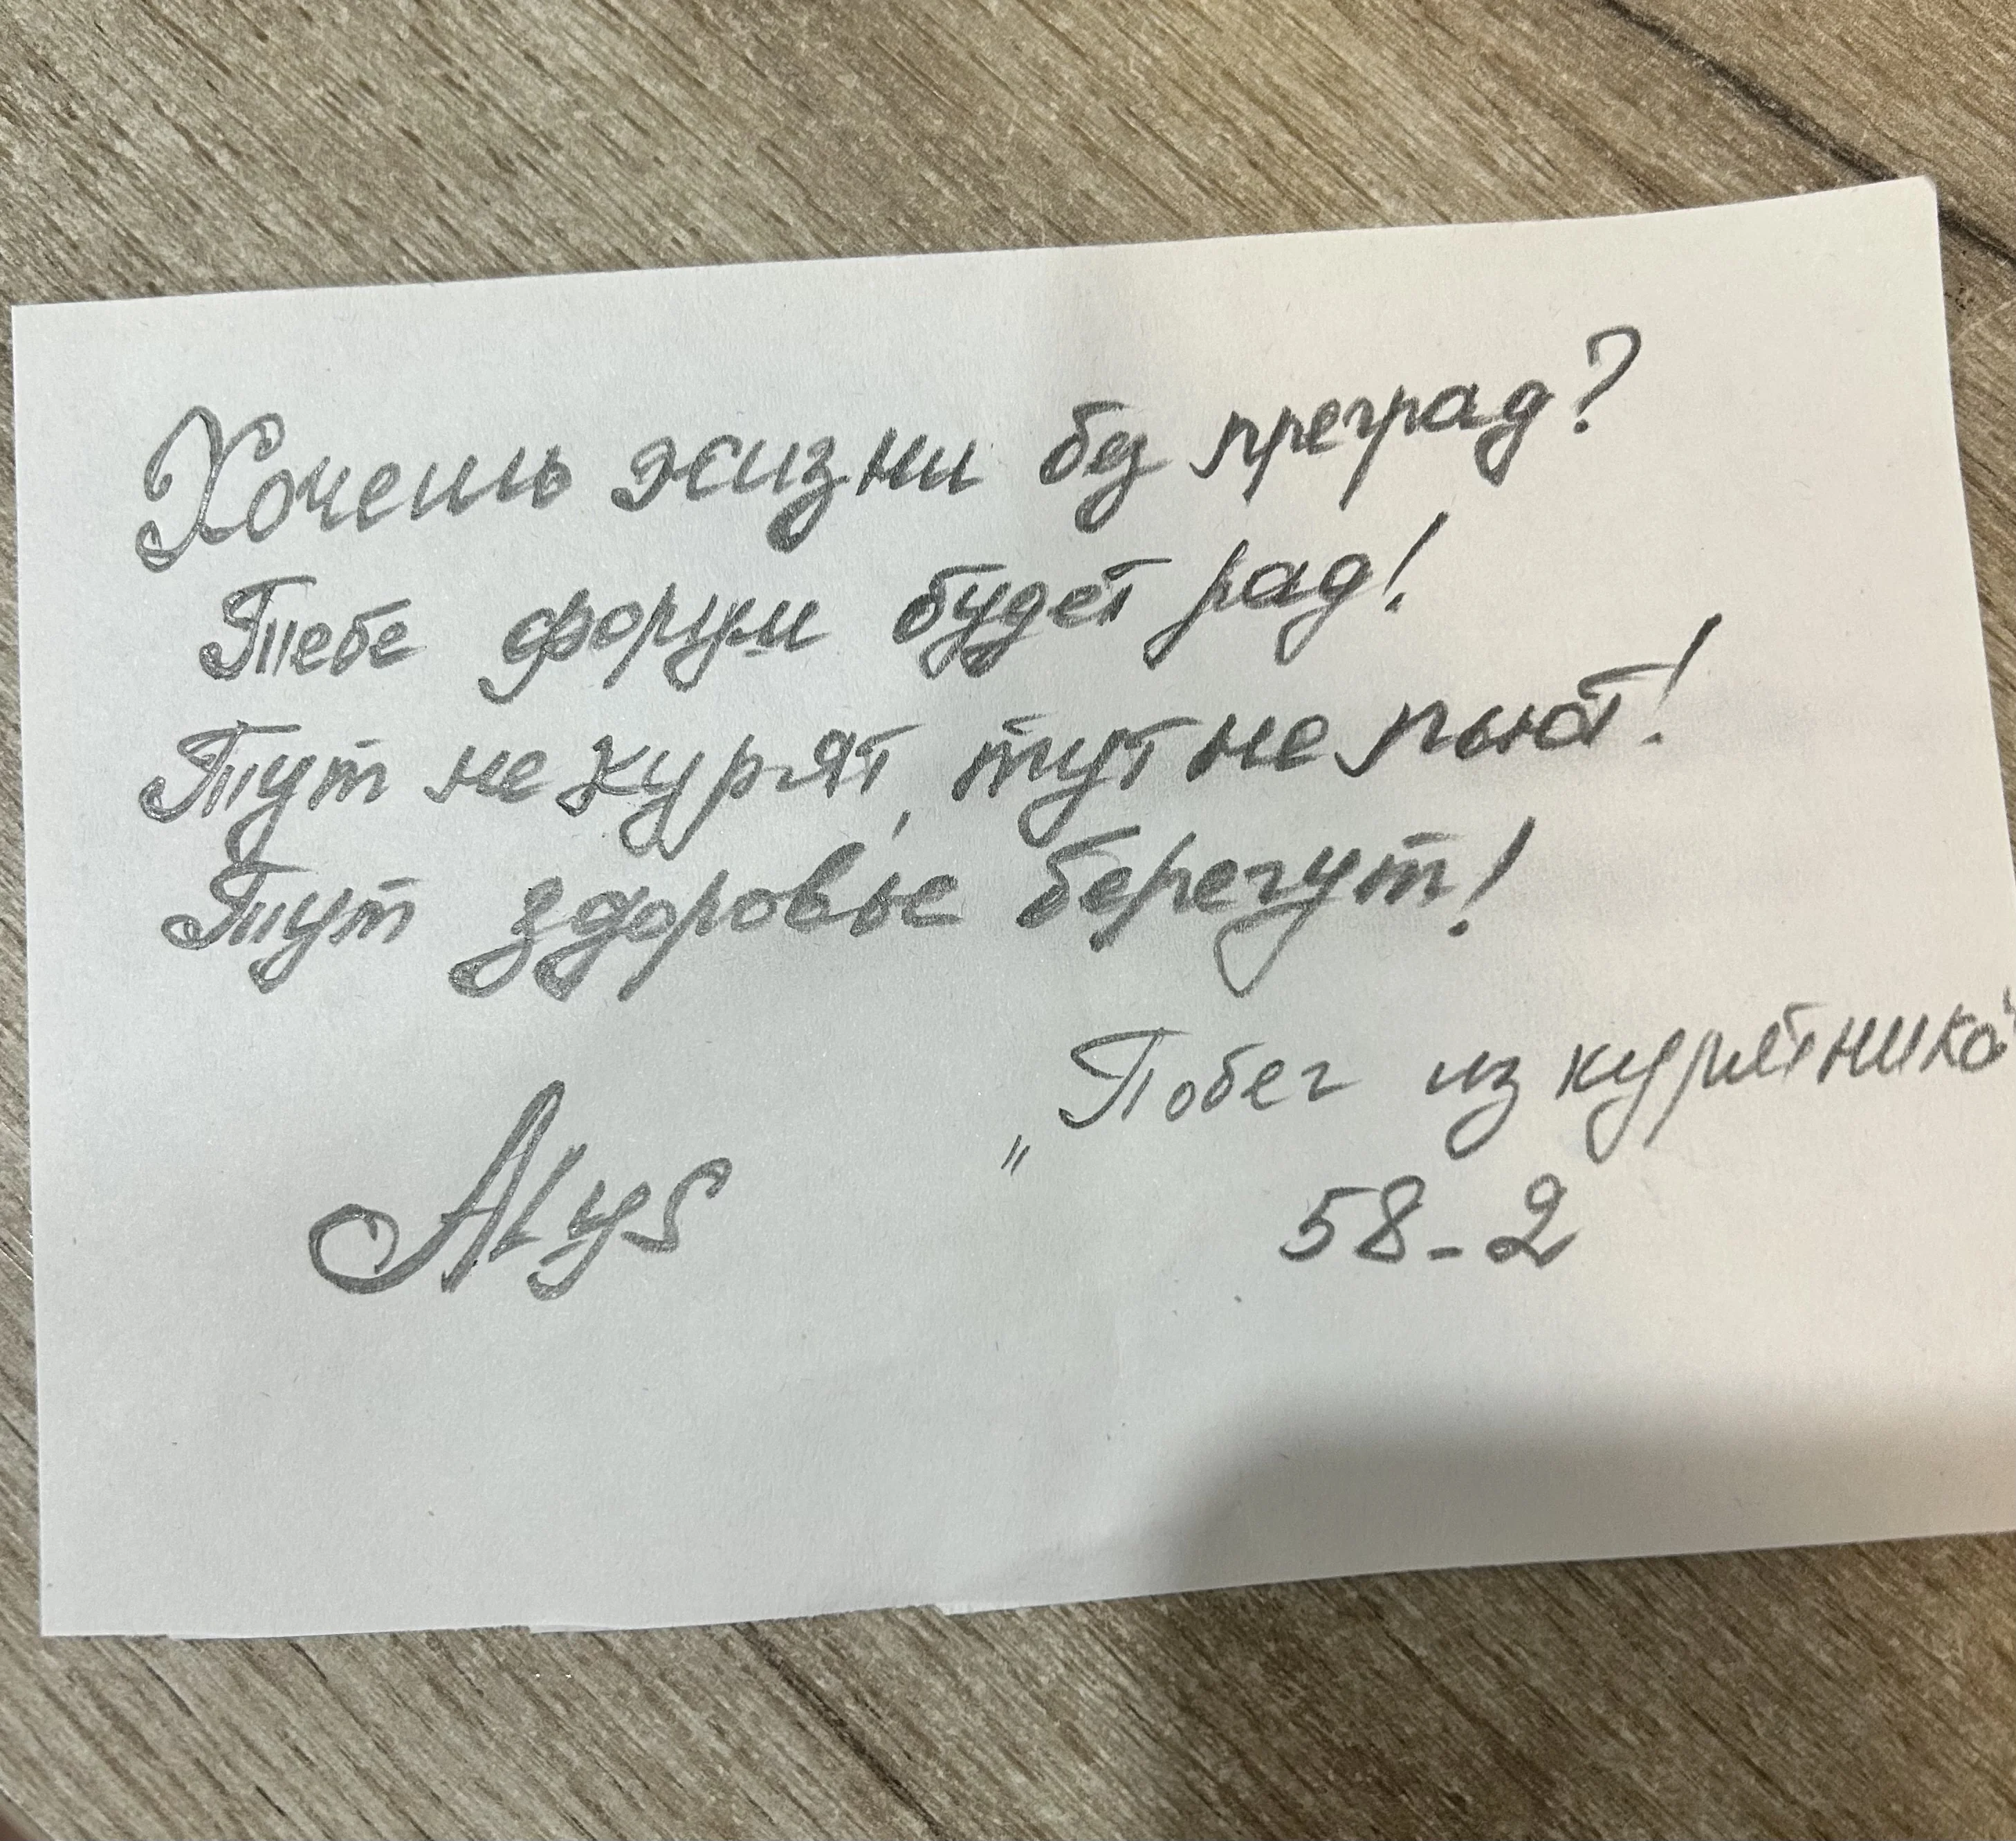 Хочешь жизни без преград?
Тебе форум будет рад!
Тут не курят, тут не пьют!
Тут здоровье берегут!
„Побег из курятника“
Alys
58-2